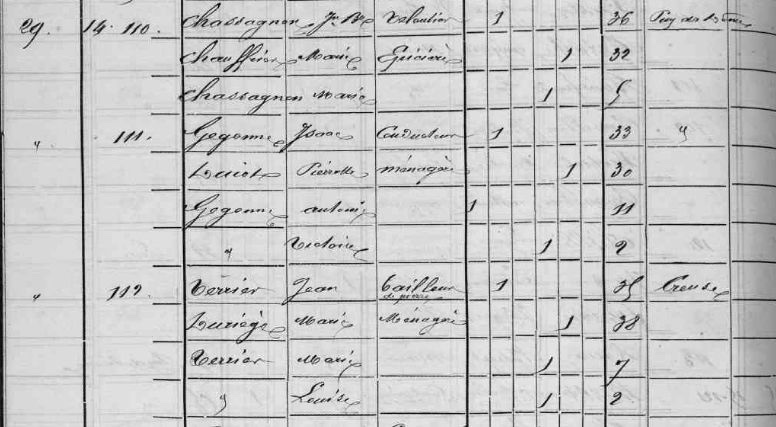 29. 14. 110. Chassagnon Jn Bte 1 36 Puy de Dôme
Chaufférin Marie Epicière 1 32
Chassagnon Marie 1 5
" 111. Gegonne Isaac Conducteur 1 33 "
Luiot Pierrette ménagère 1 30
Gegonne antoni 1 11
" Victoire 1 2
" 112. Terrier Jean tailleur de pierre 1 35 Creuse
Marie Ménagère 1 38
Terrier Marie 1 7
" Louise 1 2